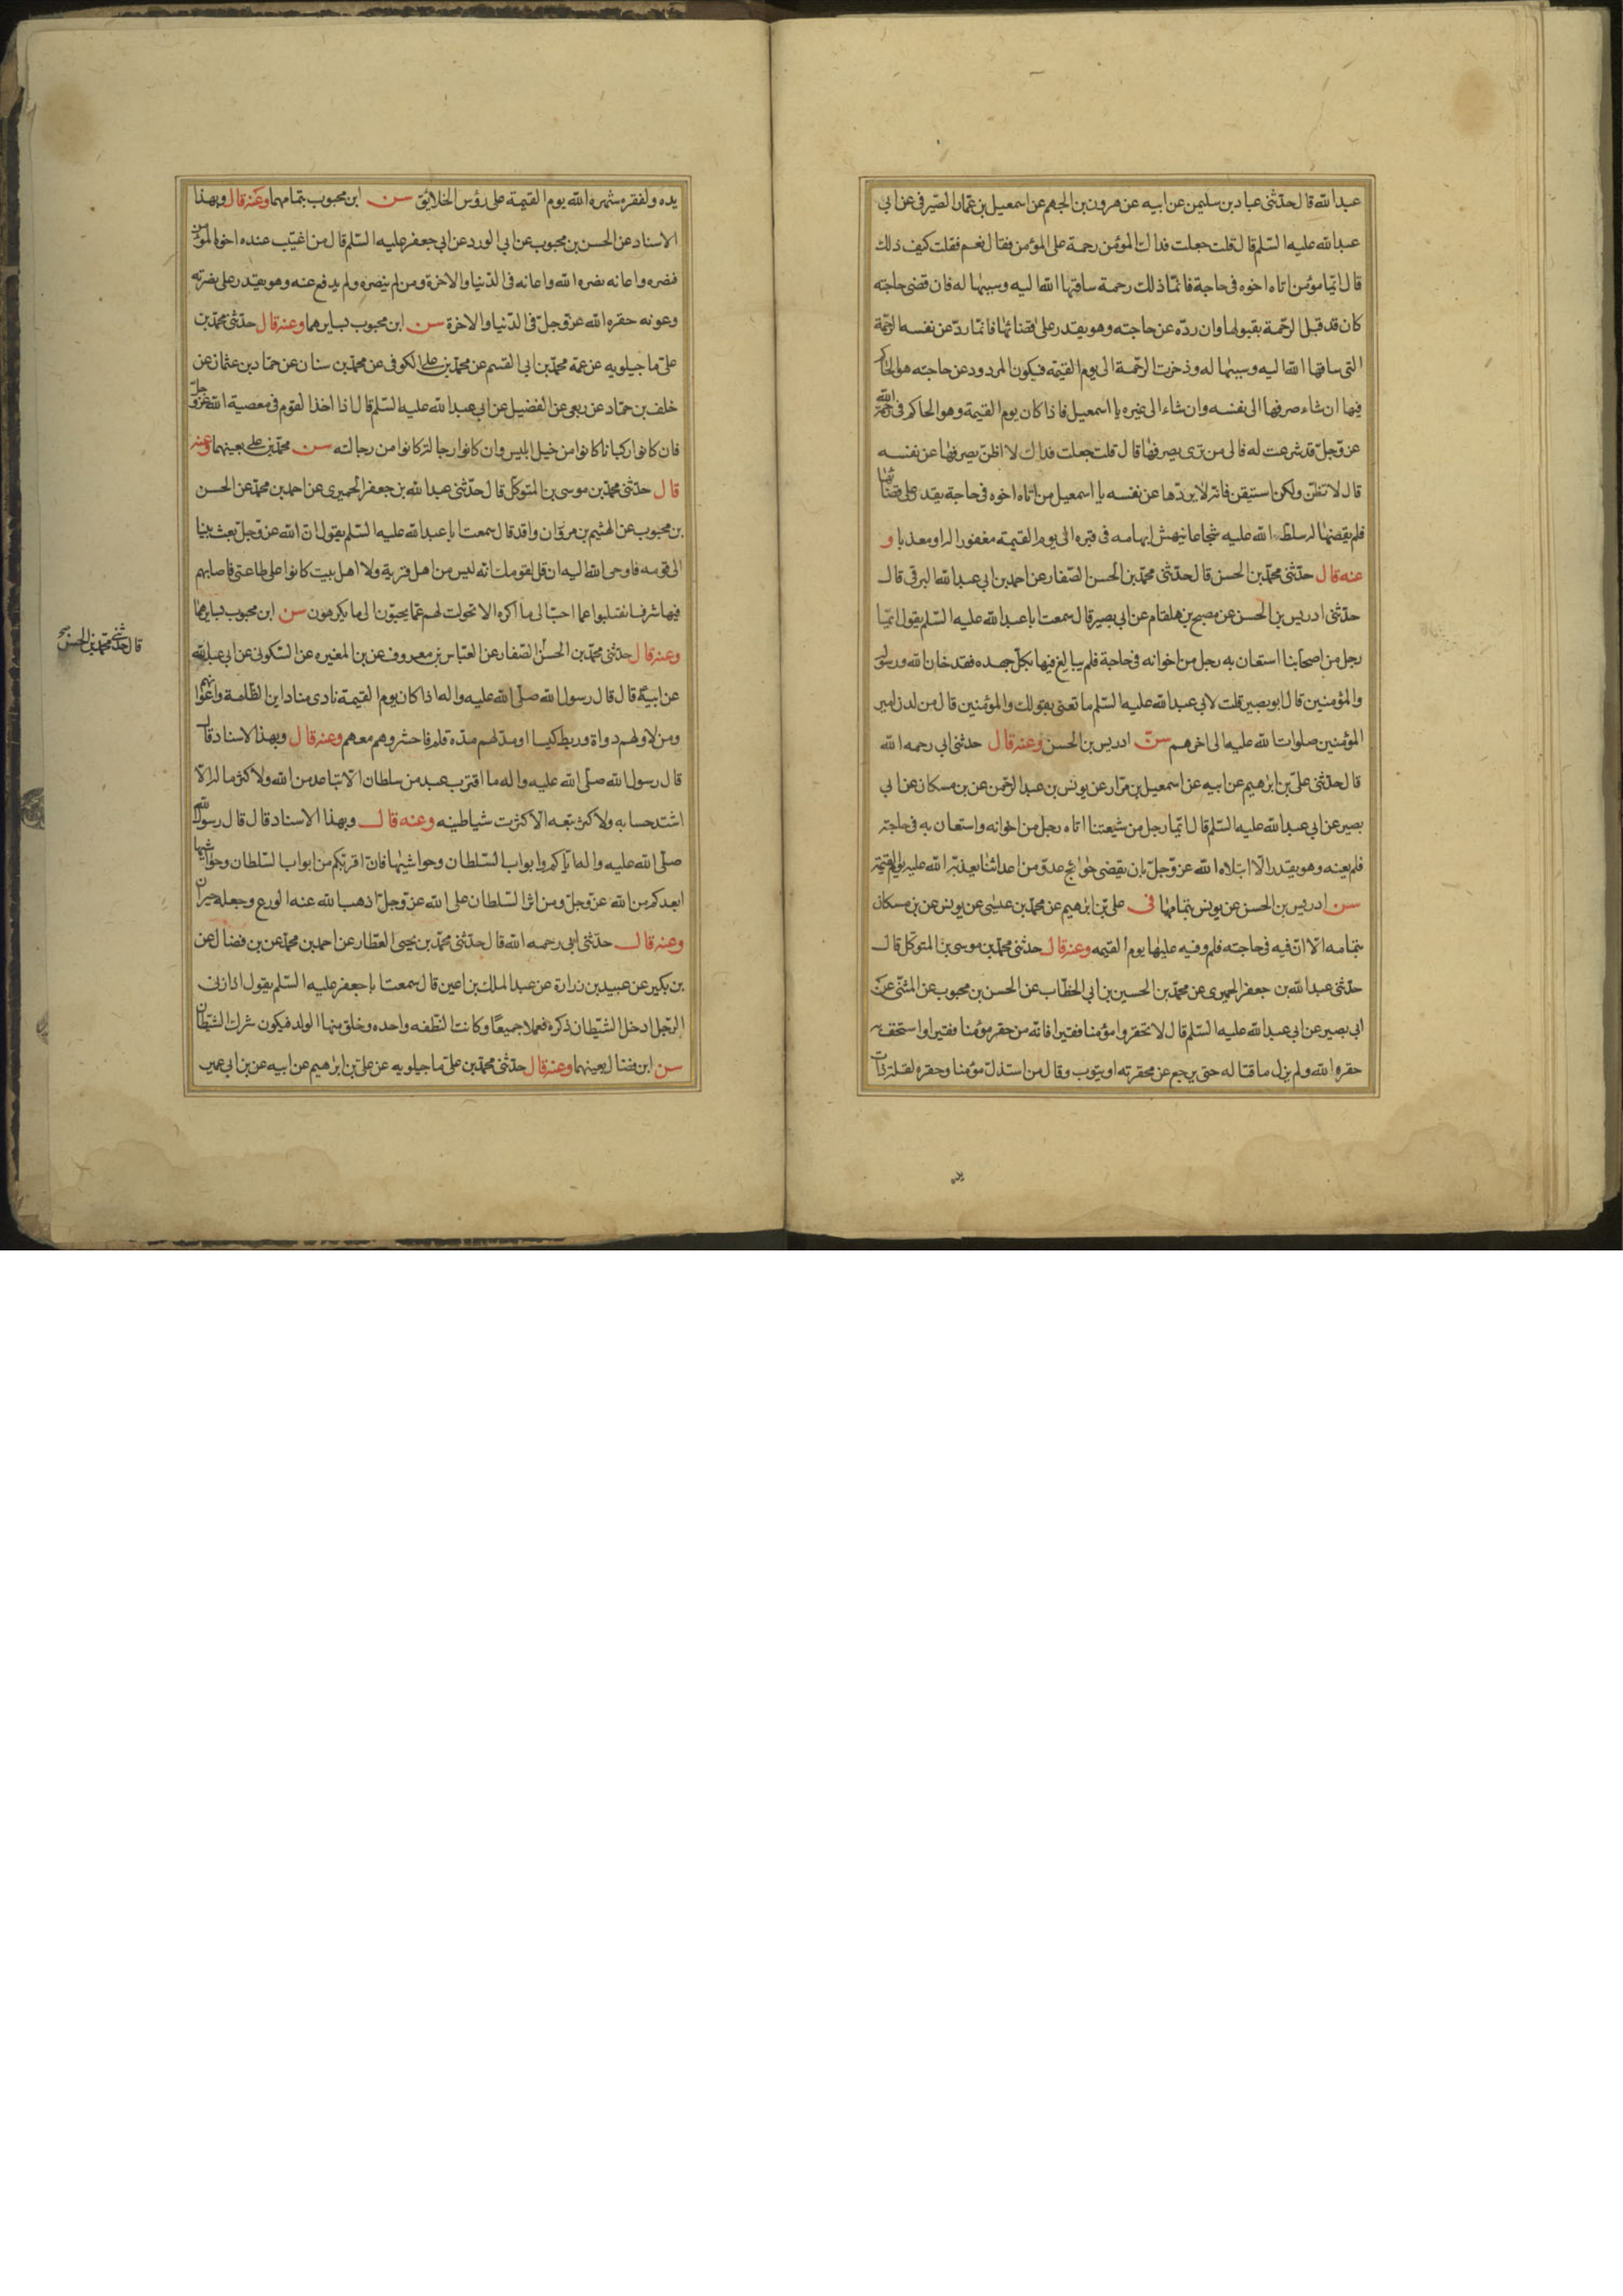 عبدالله قال حدثنى عباد بن سليمن عن ابيه عن هرون بن الجهم عن اسمعيل بن عمار الصيرفى عن ابى
عبدالله عليه السلم قال قلت جعلت فداك المؤمن رحمة على المؤمن فقال نعم فقلت كيف ذلك
قال ايما مؤمن اتاه اخوه فى حاجة فانما ذلك رحمة ساقها الله اليه وسببها له فان قضى حاجته
كان قد قبل الرحمة بقبولها وان رده عن حاجته وهو يقدر على قضائها فانما رد عن نفسه الرحمة
التى ساقها الله اليه وسببها له وذخرت الرحمة الى يوم القيمة فيكون المردود عن حاجته هو الحاكم
فيها ان شاء صرفها الى نفسه وان شاء الى غيره يا اسمعيل فاذا كان يوم القيمة وهو الحاكم فى رحمة الله
عز وجل قد شرعت له فالى من ترى يصرفها قال قلت جعلت فداك لا اظن يصرفها عن نفسه
قال لا تظن ولكن استيقن فانه لا يردها عن نفسه يا اسمعيل من اتاه اخوه فى حاجة يقدر على قضائها
فلم يقضها له سلط الله عليه شجاعا ينهش ابهامه فى قبره الى يوم القيمة مغفورا له او معذبا و
عنه قال حدثنى محمد بن الحسن قال حدثنى محمد بن الحسن الصفار عن احمد بن ابى عبدالله البرقى قال
حدثنى ادريس بن الحسن عن مصبح بن هلقام عن ابى بصير قال سمعت ابا عبدالله عليه السلم يقول ايما
رجل من اصحابنا استعان به رجل من اخوانه فى حاجة فلم يبالغ فيها بكل جهده فقد خان الله ورسوله
والمؤمنين قال ابو بصير قلت لابى عبدالله عليه السلم ما تعنى بقولك والمؤمنين قال من لدن امير
المؤمنين صلوات الله عليه الى اخرهم سن ادريس بن الحسن وعنه قال حدثنى ابى رحمه الله
قال حدثنى على بن ابرهيم عن ابيه عن اسمعيل بن مرار عن يونس بن عبدالرحمن عن بن مسكان عن ابى
بصير عن ابى عبدالله عليه السلم قال ايما رجل من شيعتنا اتاه رجل من اخوانه واستعان به فى حاجته
فلم يعنه وهو يقدر الا ابتلاه الله عز وجل بان يقضى حوائج عدو من اعدائنا يعذبه الله عليه يوم القيمة
سن ادريس بن الحسن عن يونس بتمامها فى على بن ابرهيم عن محمد بن عيسى عن يونس عن بن مسكان
بتمامه الا ان فيه فى حاجته فلم وفيه عليها يوم القيمه وعنه قال حدثنى محمد بن موسى بن المتوكل قال
حدثنى عبدالله بن جعفر الحميرى عن محمد بن الحسين بن ابى الخطاب عن الحسن بن محبوب عن المثنى عن
ابى بصير عن ابى عبدالله عليه السلم قال لا تحقروا مؤمنا فقيرا فانه من حقر مؤمنا فقيرا واستخف به
حقره الله ولم يزل ماقتا له حتى يرجع عن محقرته او يتوب وقال من استذل مؤمنا وحقره لقلة ذات
يده
يده ولفقره شهره الله يوم القيمة على رؤس الخلايق سن ابن محبوب بتمامهما وعنه قال وبهذا
الاسناد عن الحسن بن محبوب عن ابى الورد عن ابى جعفر عليه السلم قال من اغتيب عنده اخوه المؤمن
فنصره واعانه نصره الله واعانه فى الدنيا والاخرة ومن لم ينصره ولم يدفع عنه وهو يقدر على نصرته
وعونه حقره الله عز وجل فى الدنيا والاخرة سن ابن محبوب بسايرهما وعنه قال حدثنى محمد بن
على ماجيلويه عن عمه محمد بن ابى القسم عن محمد بن على الكوفى عن محمد بن سنان عن حماد بن عثمان عن
خلف بن حماد عن ربعى عن الفضيل عن ابى عبدالله عليه السلم قال اذا اخذ القوم فى معصية الله عز وجل
فان كانوا ركبانا كانوا من خيل ابليس وان كانوا رجالة كانوا من رجالته سن محمد بن على بعينهما وعنه
قال حدثنى محمد بن موسى بن المتوكل قال حدثنى عبدالله بن جعفر الحميرى عن احمد بن محمد عن الحسن
بن محبوب عن الهثيم بن واقد قال سمعت ابا عبدالله عليه السلم يقول ان الله عز وجل بعث نبيا
الى قومه فاوحى الله اليه ان قل لقومك انه ليس من اهل قرية ولا اهل بيت كانوا على طاعتى فاصابهم
فيها شر فانتقلبوا عما احب الى ما اكره الا تحولت لهم عما يحبون الى ما يكرهون سن ابن محبوب بسايرهما
وعنه قال حدثنى محمد بن الحسن الصفار عن العباس بن معروف عن بن المغيره عن السكونى عن ابى عبدالله
قال حدثنى محمد بن الحسن صح
عن ابيه قال قال رسول الله صلى الله عليه واله اذا كان يوم القيمة نادى مناد اين الظلمة واعوانهم
ومن لاق لهم دواة وربط كيسا او مد لهم مدة قلم فاحشروهم معهم وعنه قال وبهذا الاسناد قال
قال رسول الله صلى الله عليه واله ما اقترب عبد من سلطان الا تباعد من الله ولا كثر ماله الا
اشتد حسابه ولا كثر تبعه الا كثرت شياطينه وعنه قال وبهذا الاسناد قال قال رسول الله
صلى الله عليه واله اياكم وابواب السلطان وحواشيها فان اقربكم من ابواب السلطان وحواشيها
ابعدكم من الله عز وجل ومن اثر السلطان على الله عز وجل اذهب الله عنه الورع وجعله حيران
وعنه قال حدثنى ابى رحمه الله قال حدثنى محمد بن يحيى العطار عن احمد بن محمد عن بن فضال عن
بن بكير عن عبيد بن زرارة عن عبدالملك بن اعين قال سمعت ابا جعفر عليه السلم يقول اذا زنى
الرجل ادخل الشيطان ذكره فعملا جميعا وكانت النطفه واحده وخلق منها الولد فيكون شرك الشيطان
سن ابن فضال بعينهما وعنه قال حدثنى محمد بن على ماجيلويه عن على بن ابرهيم عن ابيه عن بن ابى عمير